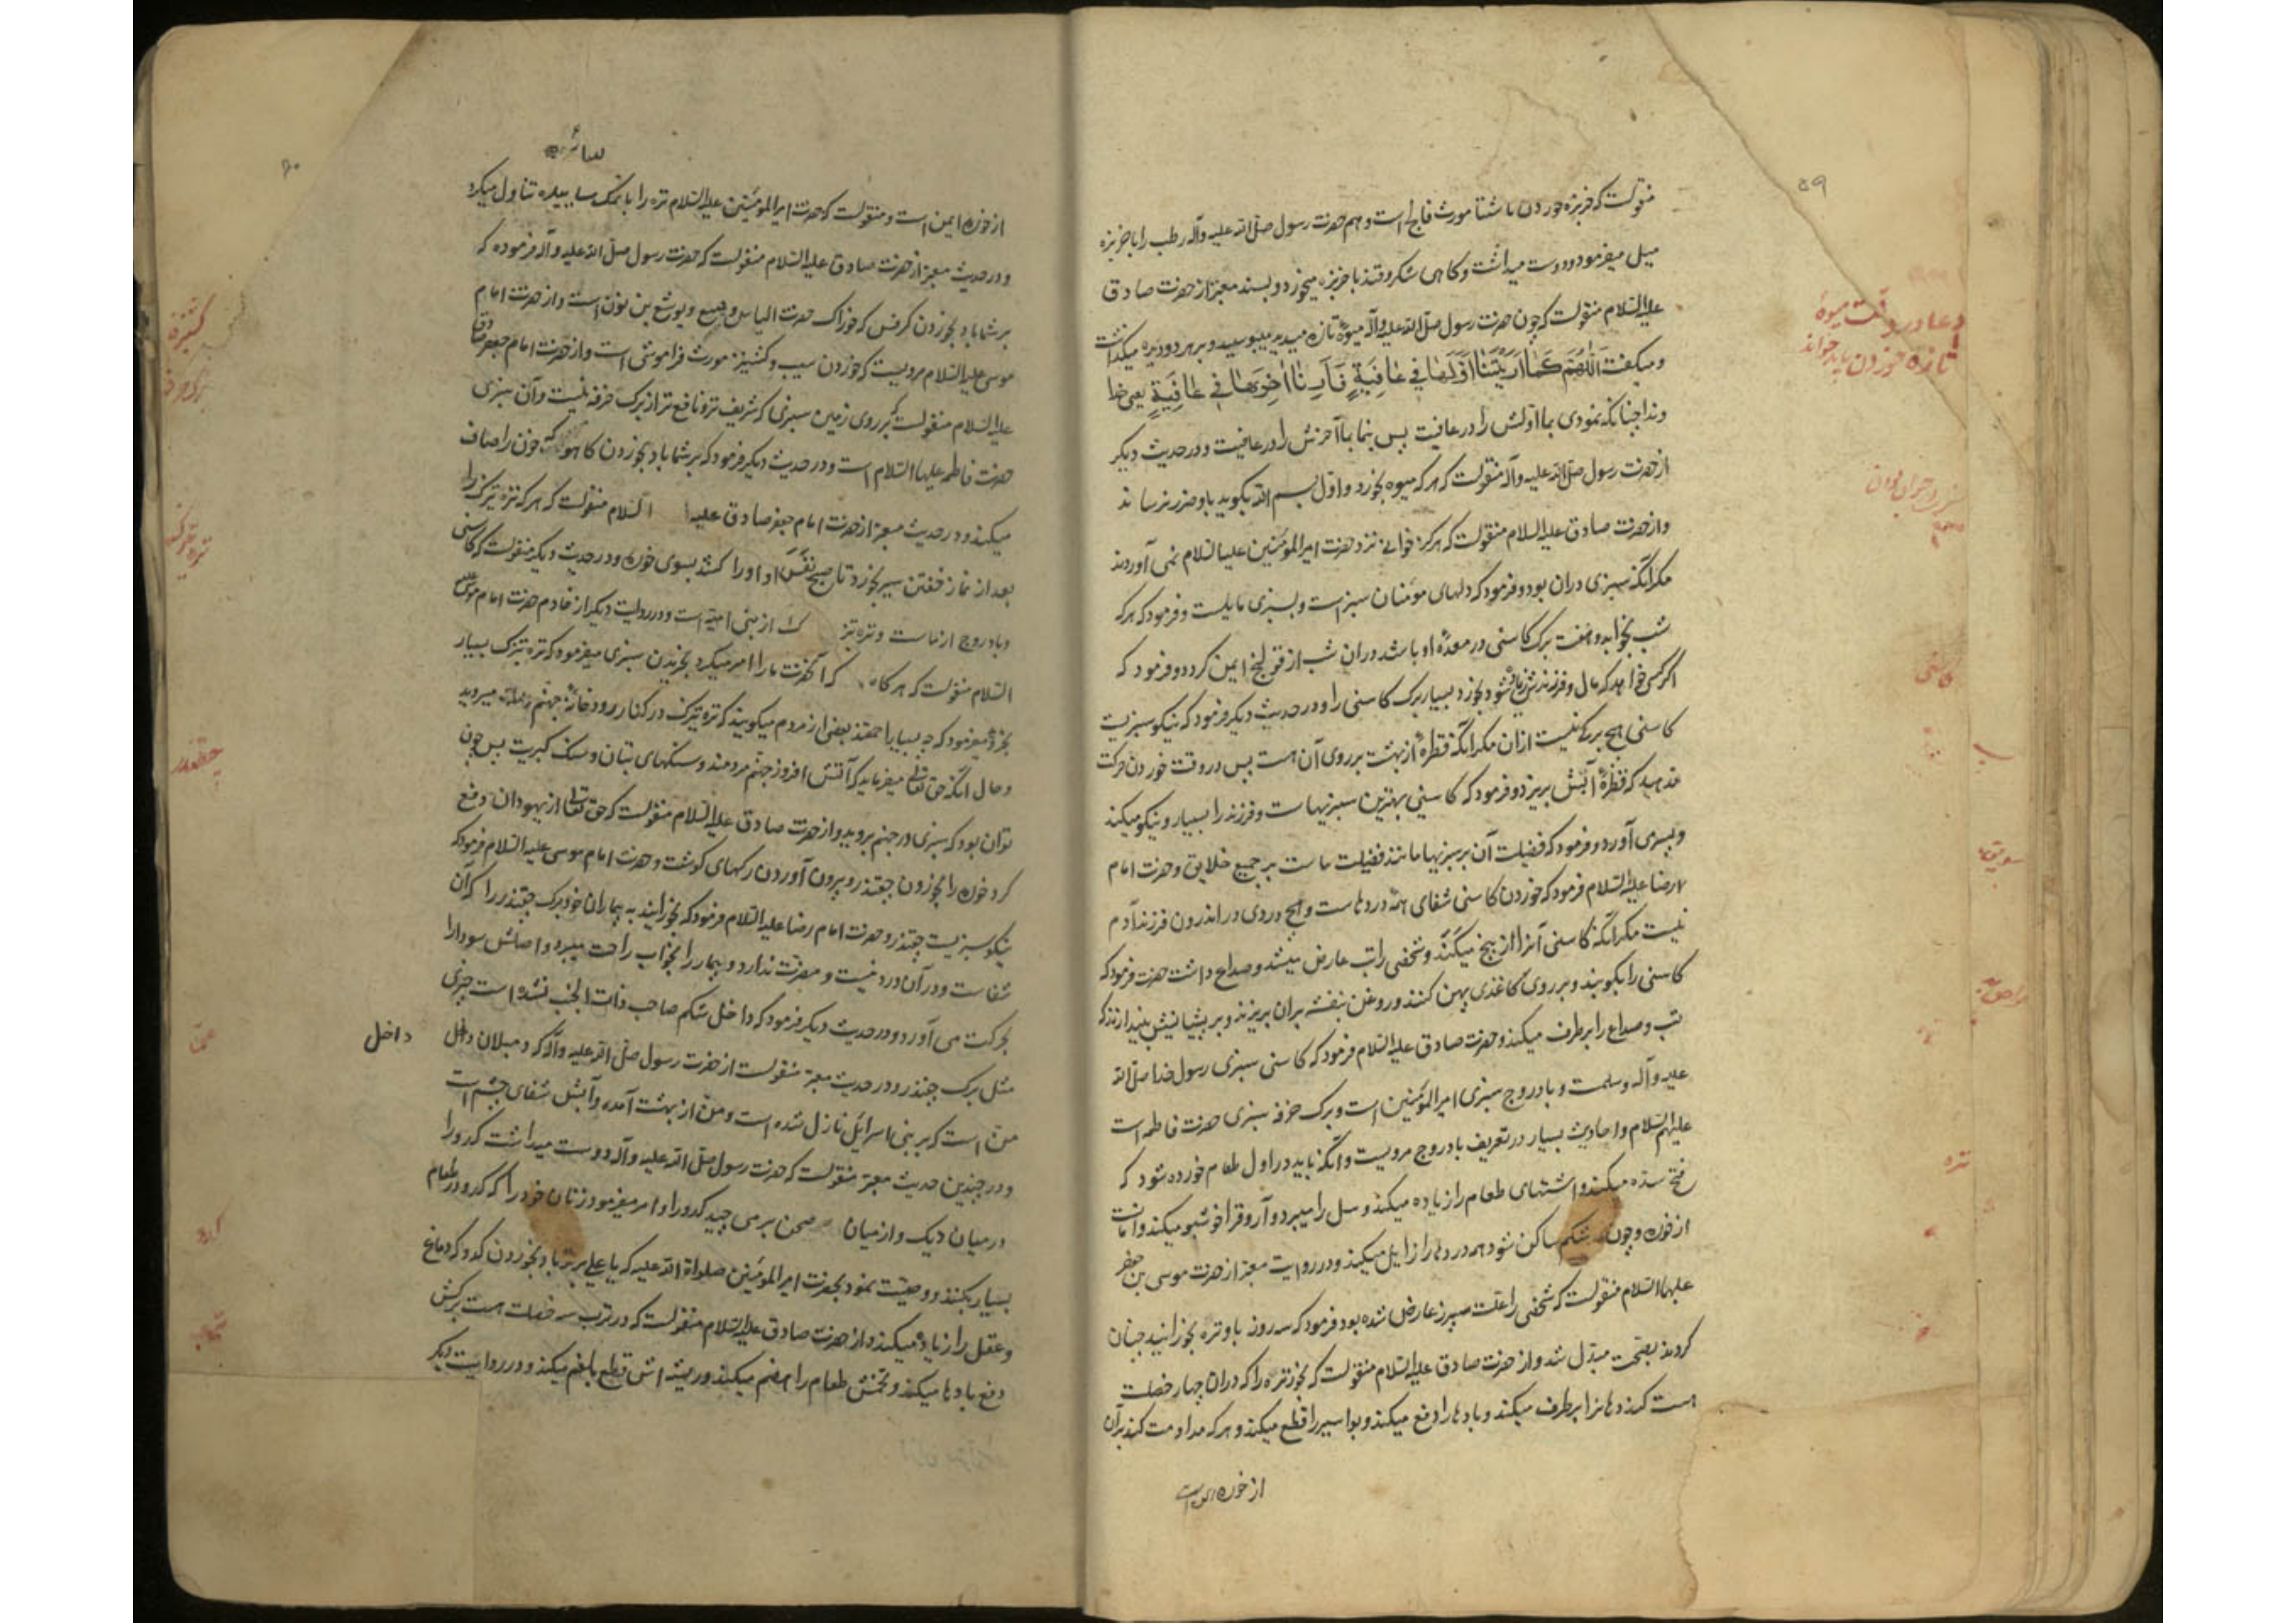 ۵۹
منقولست که خربزه خوردن ناشتا مورث فالج است و هم حضرت رسول صلی الله علیه وآله رطب را با خربزه
میل میفرمود و دوست میداشت و کاهی شکر و قند با خربزه میخورد و بسند معتبر از حضرت صادق
علیه السلام منقولست که چون حضرت رسول صلی الله علیه وآله میوهٔ تازه میدید میبوسید و بر هر دو دیده میکذاشت
و میکفت اَللّٰهُمَّ کَمٰا اَرَیْتَنٰا اَوَّلَهٰا فِی عٰافِیَةٍ فَاَرِنٰا اٰخِرَهٰا فِی عٰافِیَةٍ یعنی خدا
وندا چنانکه نمودی بما اولش را در عافیت پس بنما بما آخرش را در عافیت و در حدیث دیکر
از حضرت رسول صلی الله علیه وآله منقولست که هر که میوه بخورد و اول بسم الله بکوید باو ضرر نرساند
و از حضرت صادق علیه السلام منقولست که هرکز خوانی نزد حضرت امیرالمؤمنین علیه السلام نمی آوردند
مکر آنکه سبزی دران بود و فرمود که دلهای مؤمنان سبز است و بسبزی مایلست و فرمود که هر که
شب بخوابد و هفت برک کاسنی در معدهٔ او باشد دران شب از قولنج ایمن کردد و فرمود که
اکر کسی خواهد که مال و فرزندش زیاده شود بخورد بسیار برک کاسنی را و در حدیث دیکر فرمود که نیکو سبزیست
کاسنی هیچ برکی نیست ازان مکر آنکه قطرهٔ از بهشت بر روی آن هست پس در وقت خوردن حرکت
مدهید که قطرهٔ آبش بریزد و فرمود که کاسنی بهترین سبزیهاست و فرزند را بسیار و نیکو میکند
و پسری آورد و فرمود که فضیلت آن بر سبزیها مانند فضیلت ماست بر جمیع خلایق و حضرت امام
رضا علیه السلام فرمود که خوردن کاسنی شفای همهٔ دردهاست و هیچ دردی در اندرون فرزند آدم
نیست مکر آنکه کاسنی آنرا از بیخ میکَنَد و شخصی را تب عارض میشد و صداع داشت حضرت فرمود که
کاسنی را بکوبند و بر روی کاغذی پهن کنند و روغن بنفشه بران بریزند و بر پیشانیش بیندازند که
تب و صداع را برطرف میکند و حضرت صادق علیه السلام فرمود که کاسنی سبزی رسول خدا صلی الله
علیه وآله وسلمست و بادروج سبزی امیرالمؤمنین است و برک خرفه سبزی حضرت فاطمه است
علیهم السلام و احادیث بسیار در تعریف بادروج مرویست و آنکه باید در اول طعام خورده شود که
فتح سده میکند و اشتهای طعام را زیاده میکند و سل را میبرد و آروق را خوشبو میکند و امانست
از خوره و چون در شکم ساکن شود همه دردها را زایل میکند و در روایت معتبر از حضرت موسی بن جعفر
علیهما السلام منقولست که شخصی را علت سپرز عارض شده بود فرمود که سه روز باو تره بخورانید چنان
کردند بصحت مبدل شد و از حضرت صادق علیه السلام منقولست که بخور تره را که دران چهار خصلت
است کند دهانرا برطرف میکند و بادها را دفع میکند و بواسیر را قطع میکند و هر که مداومت کند بر آن
از خوره ایمن است
دعا در وقت میوهٔ
تازه خوردن باید خواند
کاسنی
تره
۶۰
از خوره ایمن است و منقولست که حضرت امیرالمؤمنین علیه السلام تره را با نمک ساییده تناول میکرد
و در حدیث معتبر از حضرت صادق علیه السلام منقولست که حضرت رسول صلی الله علیه وآله فرموده که
بر شما باد بخوردن کرفس که خوراک حضرت الیاس و یسع و یوشع بن نون است و از حضرت امام
موسی علیه السلام مرویست که خوردن سیب و کشنیز مورث فراموشی است و از حضرت امام جعفر صادق
علیه السلام منقولست که بر روی زمین سبزی که شریف تر و نافع تر از برک خرفه نیست و آن سبزی
حضرت فاطمه علیها السلام است و در حدیث دیکر فرمود که بر شما باد بخوردن کاهو که خون را صاف
میکند و در حدیث معتبر از حضرت امام جعفر صادق علیه السلام منقولست که هر که تره تیزک را
بعد از نماز خفتن سیر بخورد تا صبح نفَسَ او او را کشد بسوی خوره و در حدیث دیکر منقولست که کاسنی
و بادروج از ماست و تره تیزک از بنی امیه است و در روایت دیکر از خادم حضرت امام موسی
السلام منقولست که هرکاه که آنحضرت ما را امر میکرد بخریدن سبزی میفرمود که تره تیزک بسیار
بخر و میفرمود که چه بسیار احمقند بعضی از مردم میکویند که تره تیزک در کنار رودخانهٔ جهنم میروید
و حال آنکه حق تعالی میفرماید که آتش افروز جهنم مردمند و سنکهای بتان و سنک کبریت پس چون
تواند بود که سبزی در جهنم بروید و از حضرت صادق علیه السلام منقولست که حق تعالی از یهودان دفع
کرد خوره را بخوردن چقندر و بیرون آوردن رکهای کوشت و حضرت امام موسی علیه السلام فرمود که
نیکو سبزیست چقندر و حضرت امام رضا علیه السلام فرمود که بخورانید به بیماران خود برک چقندر را که آن
شفاست و در آن درد نیست و مضرت ندارد و بیمار را بخواب راحت میبرد و اصلش سودا را
بحرکت می آورد و در حدیث دیکر فرمود که داخل شکم صاحب ذات الجنب نشده است چیزی
مثل برک چقندر و در حدیث معتبر منقولست از حضرت رسول صلی الله علیه وآله که دمبلان داخل
داخل
منّ است که بر بنی اسرائیل نازل شده است و منّ از بهشت آمده و آبش شفای چشم است
و در چندین حدیث معتبر منقولست که حضرت رسول صلی الله علیه وآله دوست میداشت کدو را
در میان دیک و از میان صحن برمی چید کدو را و امر میفرمود زنان خود را که کدو در طعام
بسیار بکنند و وصیت نمود بحضرت امیرالمؤمنین صلواة الله علیه که یا علی بر تو باد بخوردن کدو که دماغ
و عقل را زیاده میکند و از حضرت صادق علیه السلام منقولست که در ترب سه خصلت هست برکش
دفع بادها میکند و تخمش طعام را هضم میکند و ریشه اش قطع بلغم میکند و در روایت دیکر
کشنیز
برک خرفه
تره تیزک
چقندر